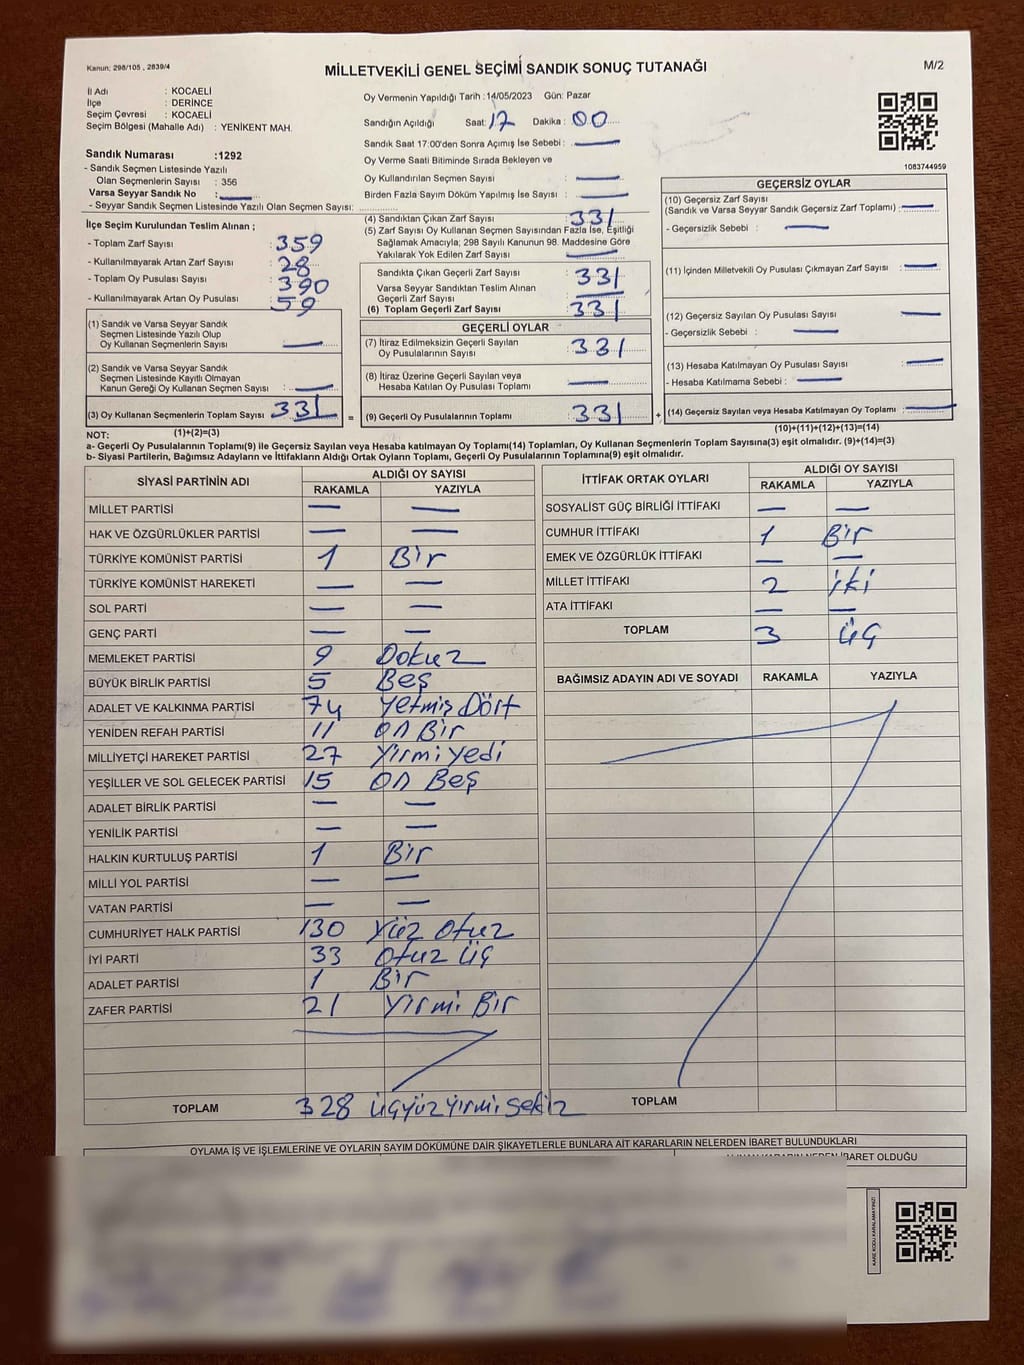 Kanun: 298/105 , 2839/4
MİLLETVEKİLİ GENEL SEÇİMİ SANDIK SONUÇ TUTANAĞI
M/2
İl Adı : KOCAELİ
İlçe : DERİNCE
Seçim Çevresi : KOCAELİ
Seçim Bölgesi (Mahalle Adı) : YENİKENT MAH.
Sandık Numarası :1292
- Sandık Seçmen Listesinde Yazılı
Olan Seçmenlerin Sayısı : 356
Varsa Seyyar Sandık No : —
- Seyyar Sandık Seçmen Listesinde Yazılı Olan Seçmen Sayısı:
Oy Vermenin Yapıldığı Tarih :14/05/2023 Gün: Pazar
Sandığın Açıldığı Saat: 17 Dakika : 00
Sandık Saat 17:00'den Sonra Açımış İse Sebebi : —
Oy Verme Saati Bitiminde Sırada Bekleyen ve
Oy Kullandırılan Seçmen Sayısı : —
Birden Fazla Sayım Döküm Yapılmış İse Sayısı : —
1083744959
İlçe Seçim Kurulundan Teslim Alınan ;
- Toplam Zarf Sayısı : 359
- Kullanılmayarak Artan Zarf Sayısı : 28
- Toplam Oy Pusulası Sayısı : 390
- Kullanılmayarak Artan Oy Pusulası : 59
(1) Sandık ve Varsa Seyyar Sandık
Seçmen Listesinde Yazılı Olup
Oy Kullanan Seçmenlerin Sayısı : —
(2) Sandık ve Varsa Seyyar Sandık
Seçmen Listesinde Kayıtlı Olmayan
Kanun Gereği Oy Kullanan Seçmen Sayısı : —
(3) Oy Kullanan Seçmenlerin Toplam Sayısı : 331 =
(1)+(2)=(3)
(4) Sandıktan Çıkan Zarf Sayısı : 331
(5) Zarf Sayısı Oy Kullanan Seçmen Sayısından Fazla İse, Eşitliği
Sağlamak Amacıyla; 298 Sayılı Kanunun 98. Maddesine Göre
Yakılarak Yok Edilen Zarf Sayısı : —
Sandıkta Çıkan Geçerli Zarf Sayısı : 331
Varsa Seyyar Sandıktan Teslim Alınan
Geçerli Zarf Sayısı : —
(6) Toplam Geçerli Zarf Sayısı : 331
GEÇERLİ OYLAR
(7) İtiraz Edilmeksizin Geçerli Sayılan
Oy Pusulalarının Sayısı : 331
(8) İtiraz Üzerine Geçerli Sayılan veya
Hesaba Katılan Oy Pusulası Toplamı : —
(9) Geçerli Oy Pusulalarının Toplamı : 331 +
GEÇERSİZ OYLAR
(10) Geçersiz Zarf Sayısı
(Sandık ve Varsa Seyyar Sandık Geçersiz Zarf Toplamı) : —
- Geçersizlik Sebebi : —
(11) İçinden Milletvekili Oy Pusulası Çıkmayan Zarf Sayısı : —
(12) Geçersiz Sayılan Oy Pusulası Sayısı : —
- Geçersizlik Sebebi : —
(13) Hesaba Katılmayan Oy Pusulası Sayısı : —
- Hesaba Katılmama Sebebi : —
(14) Geçersiz Sayılan veya Hesaba Katılmayan Oy Toplamı : —
(10)+(11)+(12)+(13)=(14)
NOT:
a- Geçerli Oy Pusulalarının Toplamı(9) ile Geçersiz Sayılan veya Hesaba katılmayan Oy Toplamı(14) Toplamları, Oy Kullanan Seçmenlerin Toplam Sayısına(3) eşit olmalıdır. (9)+(14)=(3)
b- Siyasi Partilerin, Bağımsız Adayların ve İttifakların Aldığı Ortak Oyların Toplamı, Geçerli Oy Pusulalarının Toplamına(9) eşit olmalıdır.
SİYASİ PARTİNİN ADI ALDIĞI OY SAYISI
RAKAMLA YAZIYLA
MİLLET PARTİSİ — —
HAK VE ÖZGÜRLÜKLER PARTİSİ — —
TÜRKİYE KOMÜNİST PARTİSİ 1 Bir
TÜRKİYE KOMÜNİST HAREKETİ — —
SOL PARTİ — —
GENÇ PARTİ — —
MEMLEKET PARTİSİ 9 Dokuz
BÜYÜK BİRLİK PARTİSİ 5 Beş
ADALET VE KALKINMA PARTİSİ 74 Yetmiş Dört
YENİDEN REFAH PARTİSİ 11 On Bir
MİLLİYETÇİ HAREKET PARTİSİ 27 Yirmi yedi
YEŞİLLER VE SOL GELECEK PARTİSİ 15 On Beş
ADALET BİRLİK PARTİSİ — —
YENİLİK PARTİSİ — —
HALKIN KURTULUŞ PARTİSİ 1 Bir
MİLLİ YOL PARTİSİ — —
VATAN PARTİSİ — —
CUMHURİYET HALK PARTİSİ 130 Yüz Otuz
İYİ PARTİ 33 Otuz üç
ADALET PARTİSİ 1 Bir
ZAFER PARTİSİ 21 Yirmi Bir
TOPLAM 328 üçyüzyirmisekiz
İTTİFAK ORTAK OYLARI ALDIĞI OY SAYISI
RAKAMLA YAZIYLA
SOSYALİST GÜÇ BİRLİĞİ İTTİFAKI — —
CUMHUR İTTİFAKI 1 Bir
EMEK VE ÖZGÜRLÜK İTTİFAKI — —
MİLLET İTTİFAKI 2 iki
ATA İTTİFAKI — —
TOPLAM 3 üç
BAĞIMSIZ ADAYIN ADI VE SOYADI RAKAMLA YAZIYLA
TOPLAM
OYLAMA İŞ VE İŞLEMLERİNE VE OYLARIN SAYIM DÖKÜMÜNE DAİR ŞİKAYETLERLE BUNLARA AİT KARARLARIN NELERDEN İBARET BULUNDUKLARI
NEDEN İBARET OLDUĞU
KARE KODU KARALAMAYINIZ!